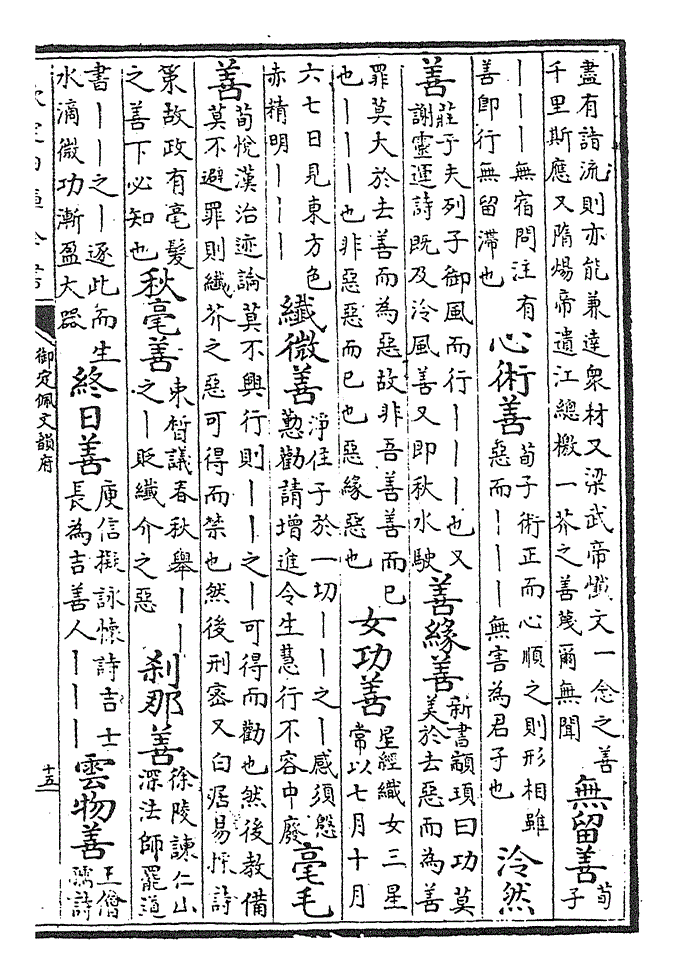 盡有諧流則亦能兼達衆材又梁武帝懺文一念之善
千里斯應又隋煬帝遺江總檄一芥之善蔑爾無聞
無留善
荀
子
丨丨丨無宿問注有
善即行無留滯也
心術善
荀子術正而心順之則形相雖
惡而丨丨丨無害為君子也
泠然
善
莊子夫列子御風而行丨丨丨也又
謝靈運詩既及泠風善又即秋水駛
善緣善
新書顓頊曰功莫
美於去惡而為善
罪莫大於去善而為惡故非吾善善而已
也丨丨丨也非惡惡而已也惡緣惡也
女功善
星經織女三星
常以七月十月
六七日見東方色
赤精明丨丨丨
纖微善
淨住子於一切丨丨之丨咸須慇
懃勸請增進令生慧行不容中廢
毫毛
善
荀悅漢治迹論莫不興行則丨丨之丨可得而勸也然後教備
莫不避罪則纖芥之惡可得而禁也然後刑密又白居易採詩
策故政有毫髮
之善下必知也
秋毫善
束晳議春秋舉丨丨
之丨貶纖介之惡
刹那善
徐陵諫仁山
深法師罷道
書丨丨之丨逐此而生
水滴微功漸盈大器
終日善
庾信擬詠懷詩吉士
長為吉善人丨丨丨
雲物善
王僧
孺詩
御定佩文韻府
十五